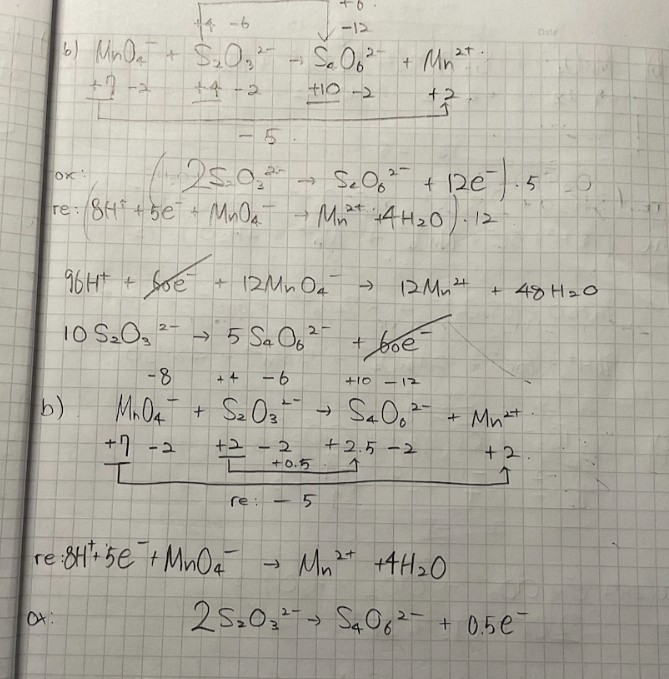 +6
+4 -6 -12
b) MnO₄⁻ + S₂O₃²⁻ → S₄O₆²⁻ + Mn²⁺.
+7 -2 +4 -2 +10 -2 +2.
-5.
ox: (2S₂O₃²⁻ → S₄O₆²⁻ + 12e⁻) · 5
re: (8H⁺ + 5e⁻ + MnO₄⁻ → Mn²⁺ + 4H₂O) · 12
96H⁺ + 60e⁻ + 12MnO₄⁻ → 12Mn²⁺ + 48H₂O
10S₂O₃²⁻ → 5S₄O₆²⁻ + 60e⁻
-8 +4 -6 +10 -12
b) MnO₄⁻ + S₂O₃²⁻ → S₄O₆²⁻ + Mn²⁺.
+7 -2 +2 -2 +2.5 -2 +2.
+0.5
re: -5
re: 8H⁺ + 5e⁻ + MnO₄⁻ → Mn²⁺ + 4H₂O
ox: 2S₂O₃²⁻ → S₄O₆²⁻ + 0.5e⁻